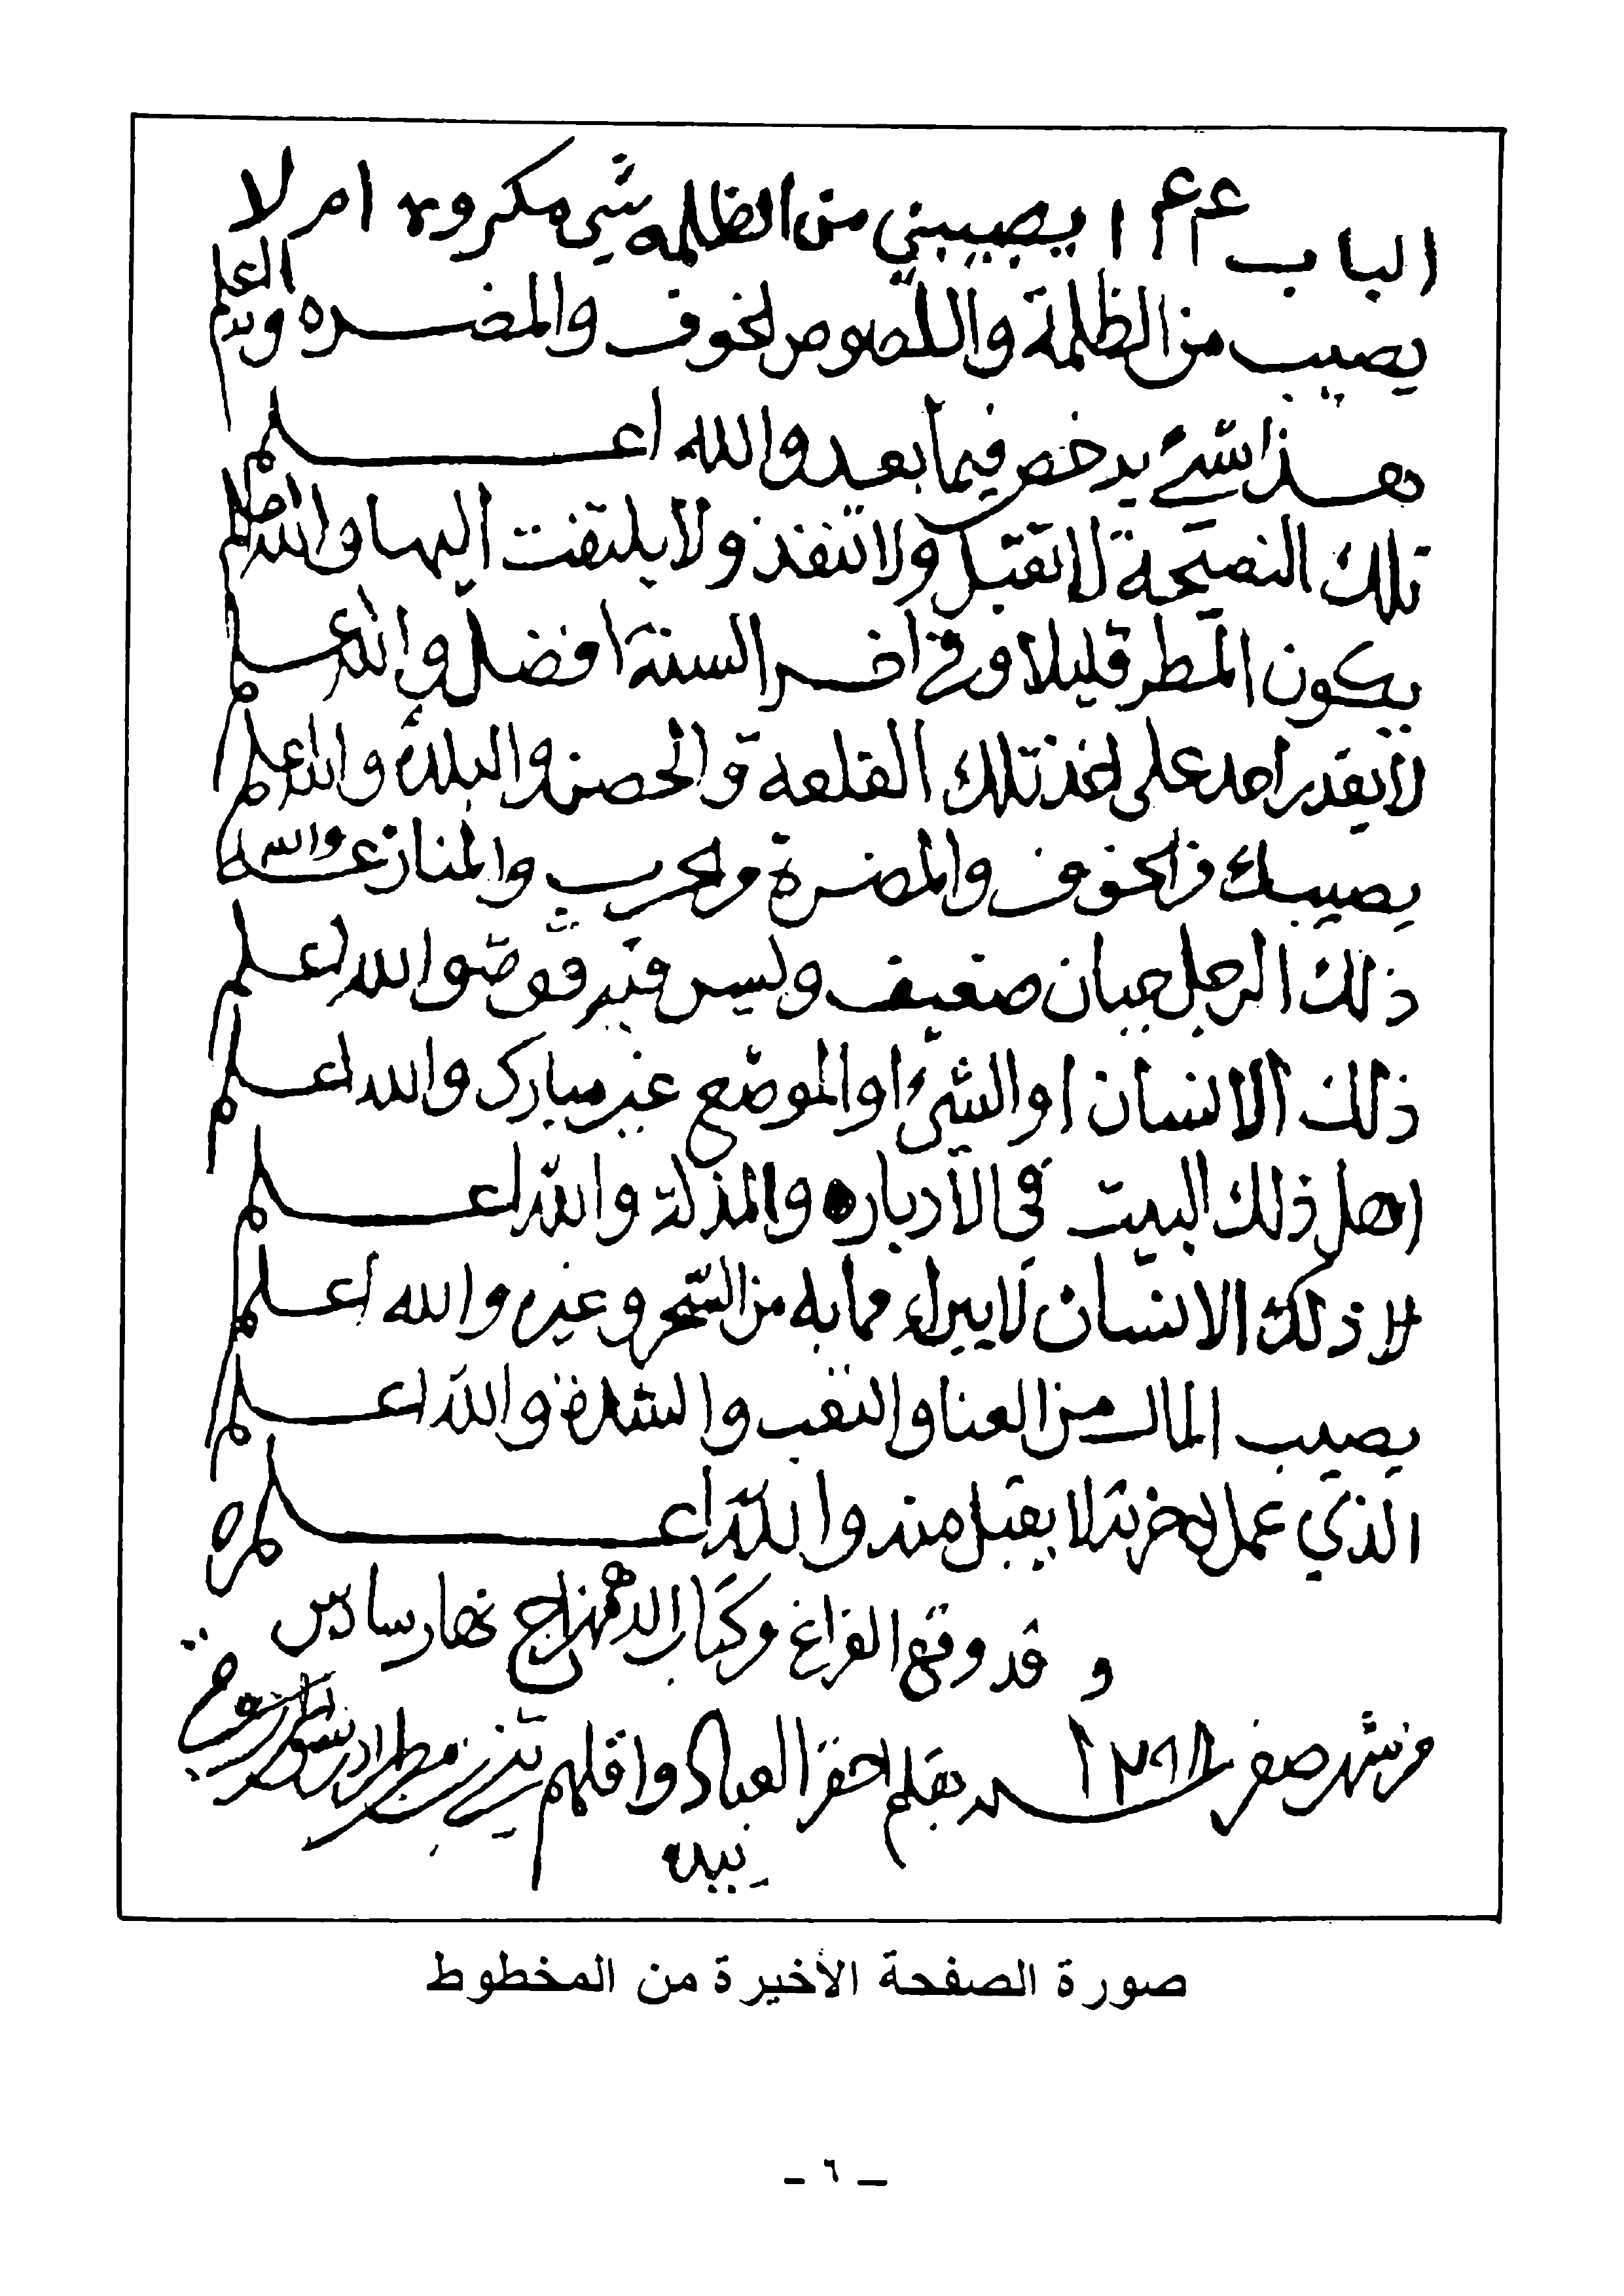 الباب ع٢ع٢ ايصيبني من الظلمه شي مكروه ام لا
يصيب من الظلمة واللصوص لخوف والمضره ولله اعلم
هذا شئ يرخص فيما بعد والله اعلم
تلك النصيحة لا تقبل ولا تنفذ ولا يلتفت اليها والله اعلم
يكون المطر قليلا وفي اخر السنة افضل والله اعلم
لا يقدر احد على اخذ تلك القلعة والحصن والبلده والله اعلم
يصيبك من الخوف والمضرة والحرب والمنازعة والله
ذلك الرجل جبان ضعيف وليس فيه قوه والله اعلم
ذلك الانسان او الشئ او الموضع غير مبارك والله اعلم
اهل ذلك البيت في الادباره والمذلة والله اعلم
لا ذلك الانسان لا يبراء مما به من السحر وغيره والله اعلم
يصيب المال من العنا والتعب والشدة والله اعلم
الذي عمل لاخرته لا يقبل منه والله اعلم ه
و قد وقع الفراغ وكتاب الدهزاج نهار سادس
من شهر صفر ١٢٩٨ بقلم احقر العباد واقلهم
بيده
صورة الصفحة الأخيرة من المخطوط
ـ ٦ ـ